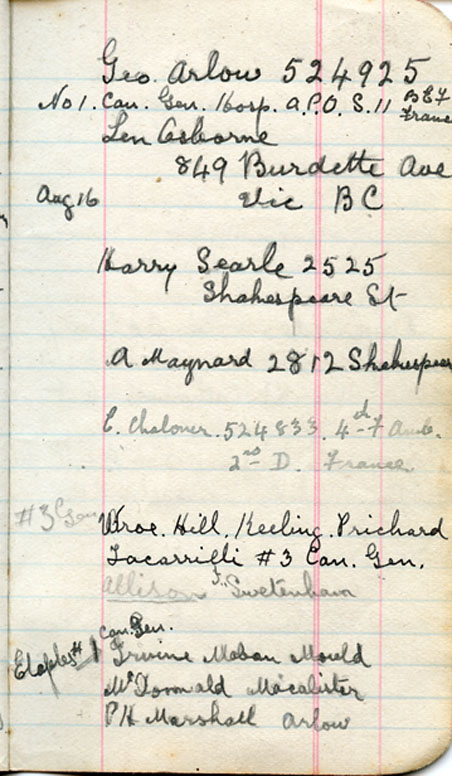 Geo. Arlow 524925
No 1. Can. Gen. Hosp. A.P.O. S. 11 BEF France
Len Osborne
849 Burdette Ave
Aug 16 Vic BC
Harry Searle 2525
Shakespeare St
A Maynard 2812 Shakespear
C. Chaloner. 524833. 4th F Amb.
2nd D. France
#3 Gen Kroe. Hill, Keeling. Prichard
Iacarrilli #3 Can. Gen.
Allison Swetenham
Can. Gen.
Etaples #1 Irvine Moban Mould
McDonnald Macalister
P H Marshall Arlow